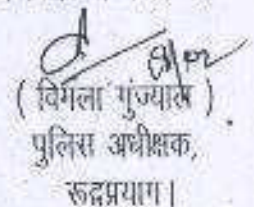 ( विमला गुंज्याल )
पुलिस अधीक्षक,
रूद्रप्रयाग।